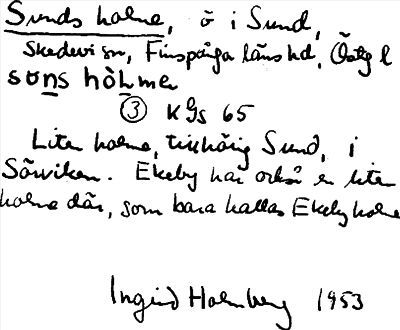 Sunds holme, ö i Sund,
Skedevi sn, Finspånga läns hd, Östg l
sons hòlmen
③ KGs 65
Liten holme, tillhörig Sund, i
Sörviken. Ekeby har också en liten
holme där, som bara kallas Ekeby holme
Ingrid Holmberg 1953